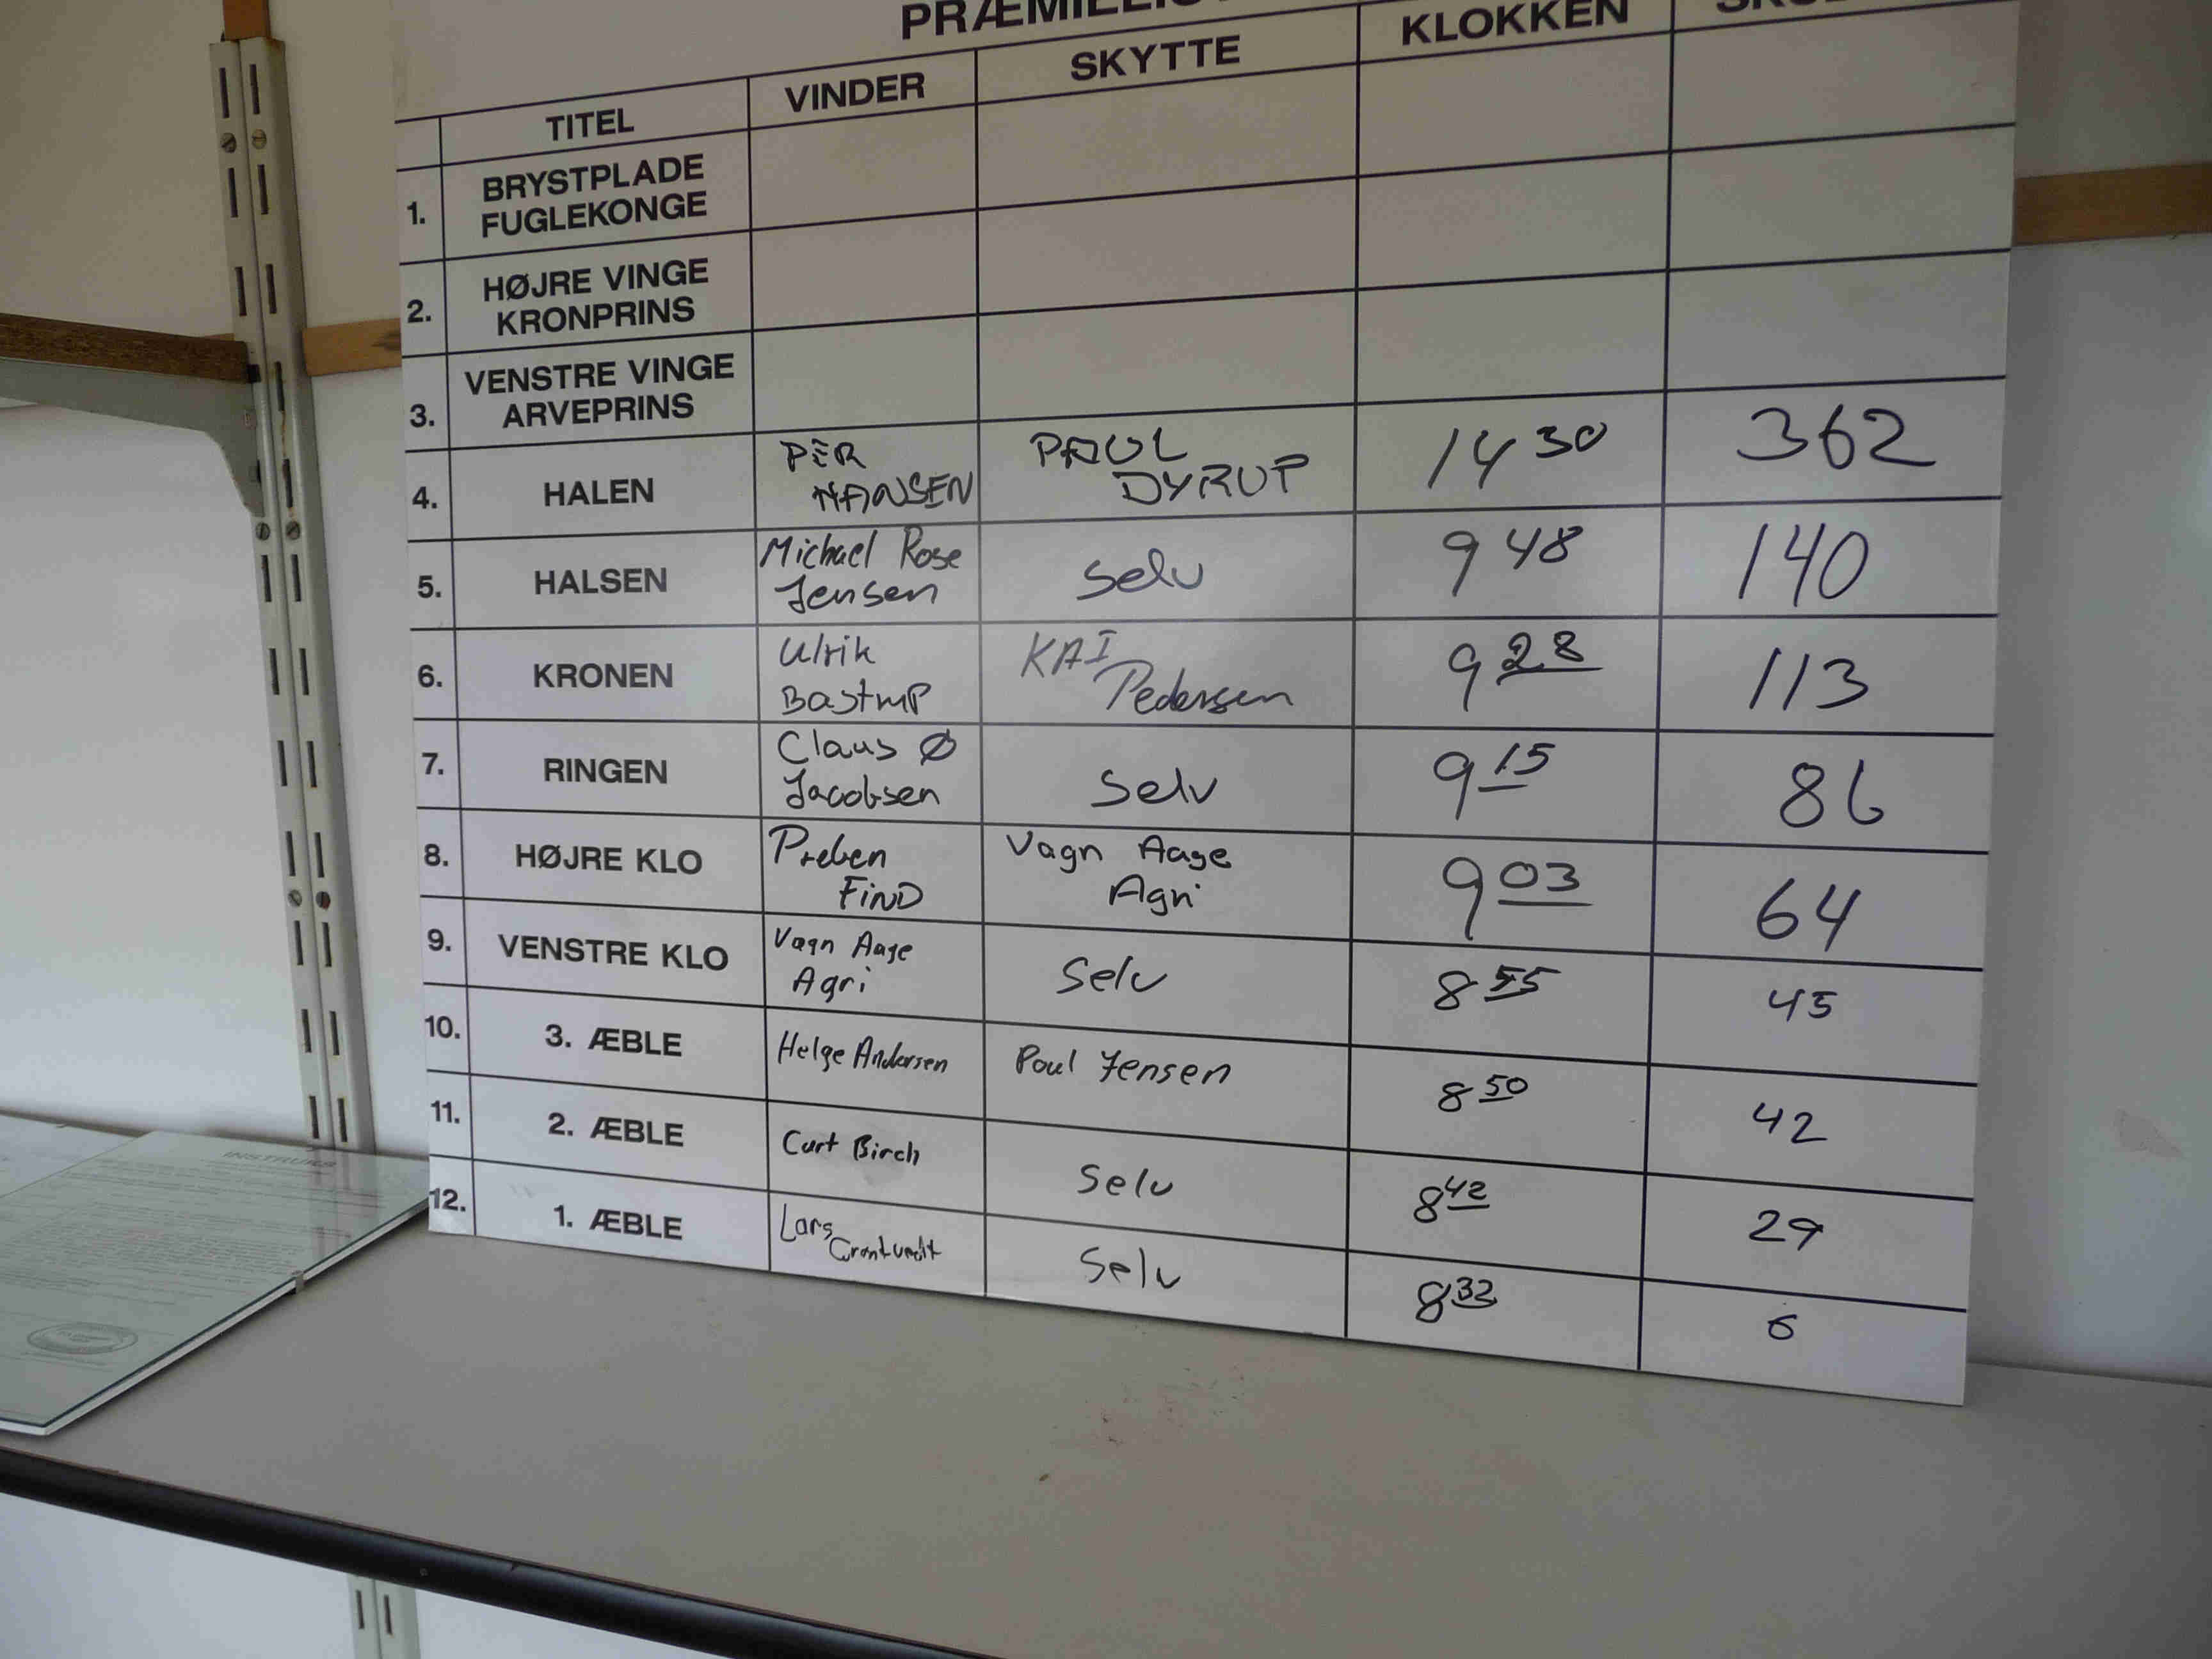 VINDER SKYTTE KLOKKEN
TITEL
1. BRYSTPLADE
FUGLEKONGE
2. HØJRE VINGE
KRONPRINS
3. VENSTRE VINGE
ARVEPRINS
4. HALEN PER HANSEN PAUL DYRUP 14 30 362
5. HALSEN Michael Rose Jensen Selv 9 48 140
6. KRONEN Ulrik Bastrup KAI Pedersen 9 28 113
7. RINGEN Claus Ø Jacobsen Selv 9 15 86
8. HØJRE KLO Preben FIND Vagn Aage Agri 9 03 64
9. VENSTRE KLO Vagn Aage Agri Selv 8 55 45
10. 3. ÆBLE Helge Andersen Poul Jensen 8 50 42
11. 2. ÆBLE Curt Birch Selv 8 42 29
12. 1. ÆBLE Lars Selv 8 33 6
INSTRUKS